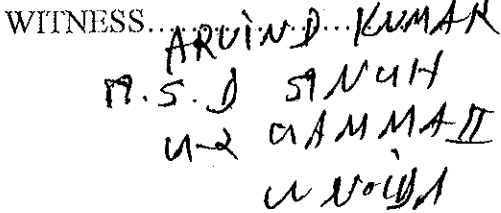 WITNESS....ARVIND...KUMAR
M.S.D SINGH
GAMMA II
G NOIDA